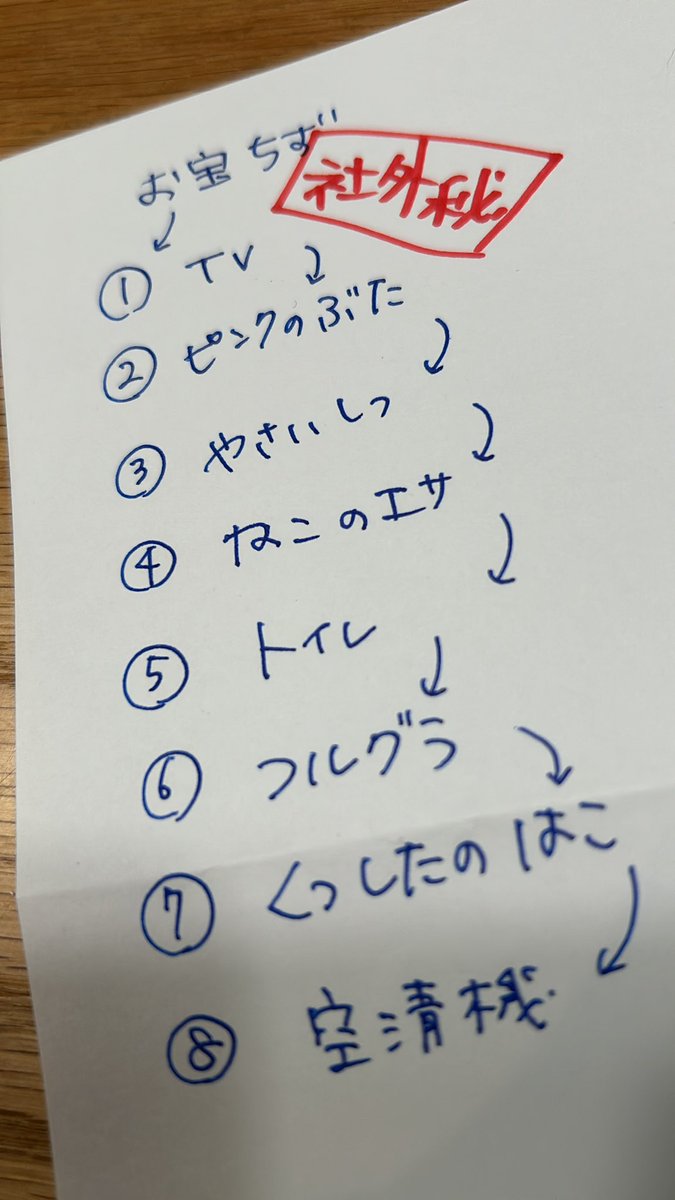 お宝ちず
社外秘
① TV
② ピンクのぶた
③ やさいしつ
④ ねこのエサ
⑤ トイレ
⑥ フルグラ
⑦ くつしたのはこ
⑧ 空清機